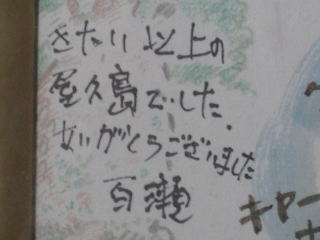 きたい以上の
屋久島でした.
ありがとうございました
百瀬
キャー